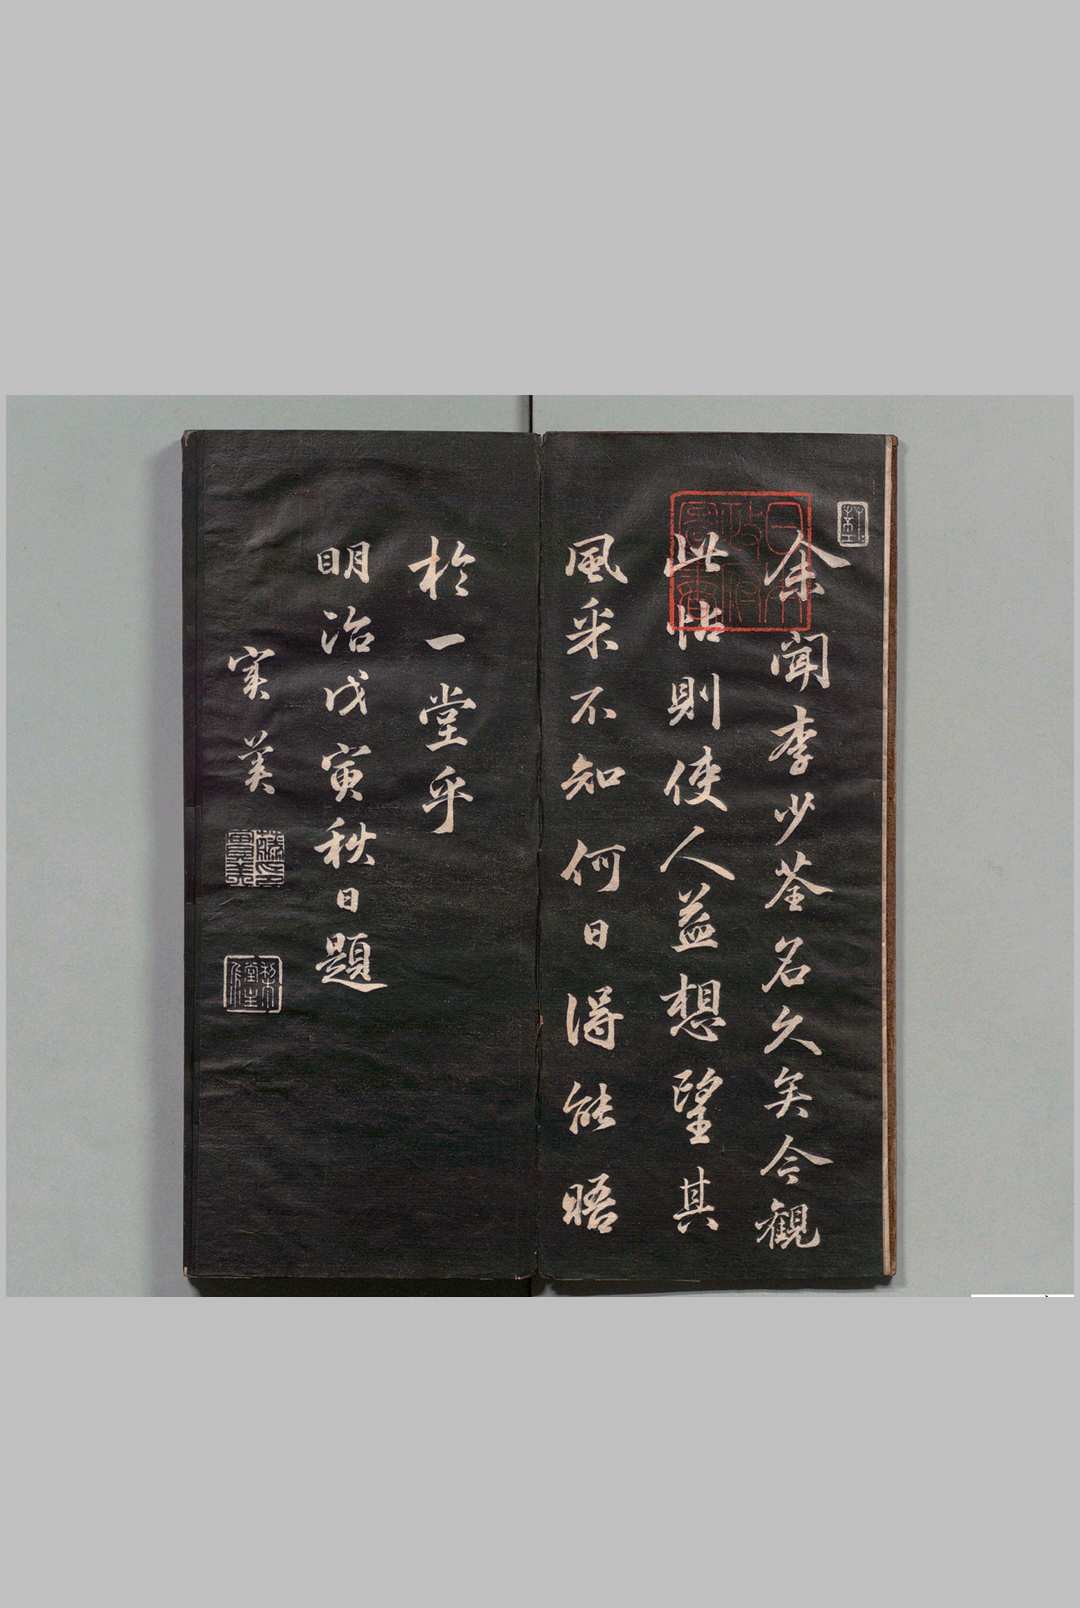 余聞李少荃名久矣今観
此帖則使人益想望其
風采不知何日得能晤
於一堂乎
明治戊寅秋日題
実美